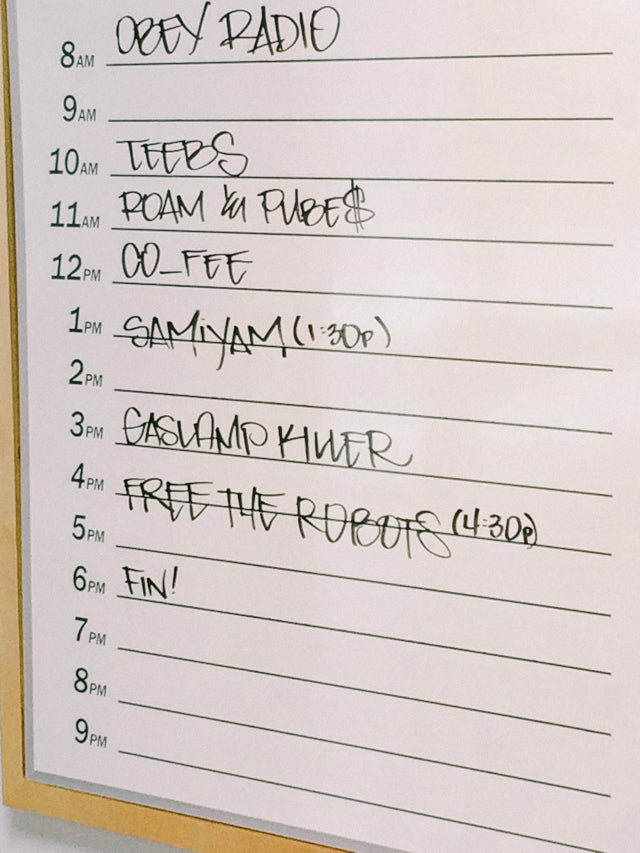 8AM OBEY RADIO
9AM
10AM TEEBS
11AM ROAM & PUBE$
12PM CO_FEE
1PM SAMiYAM (1:30p)
2PM
3PM GASLAMP KILLER
4PM FREE THE ROBOTS (4:30p)
5PM
6PM FIN!
7PM
8PM
9PM